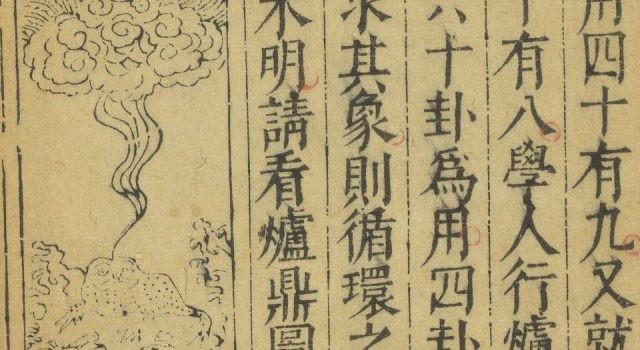 用四十有九又就
十有八學人行爐
六十卦爲用四卦
求其象則循環之
未明請看爐鼎圖